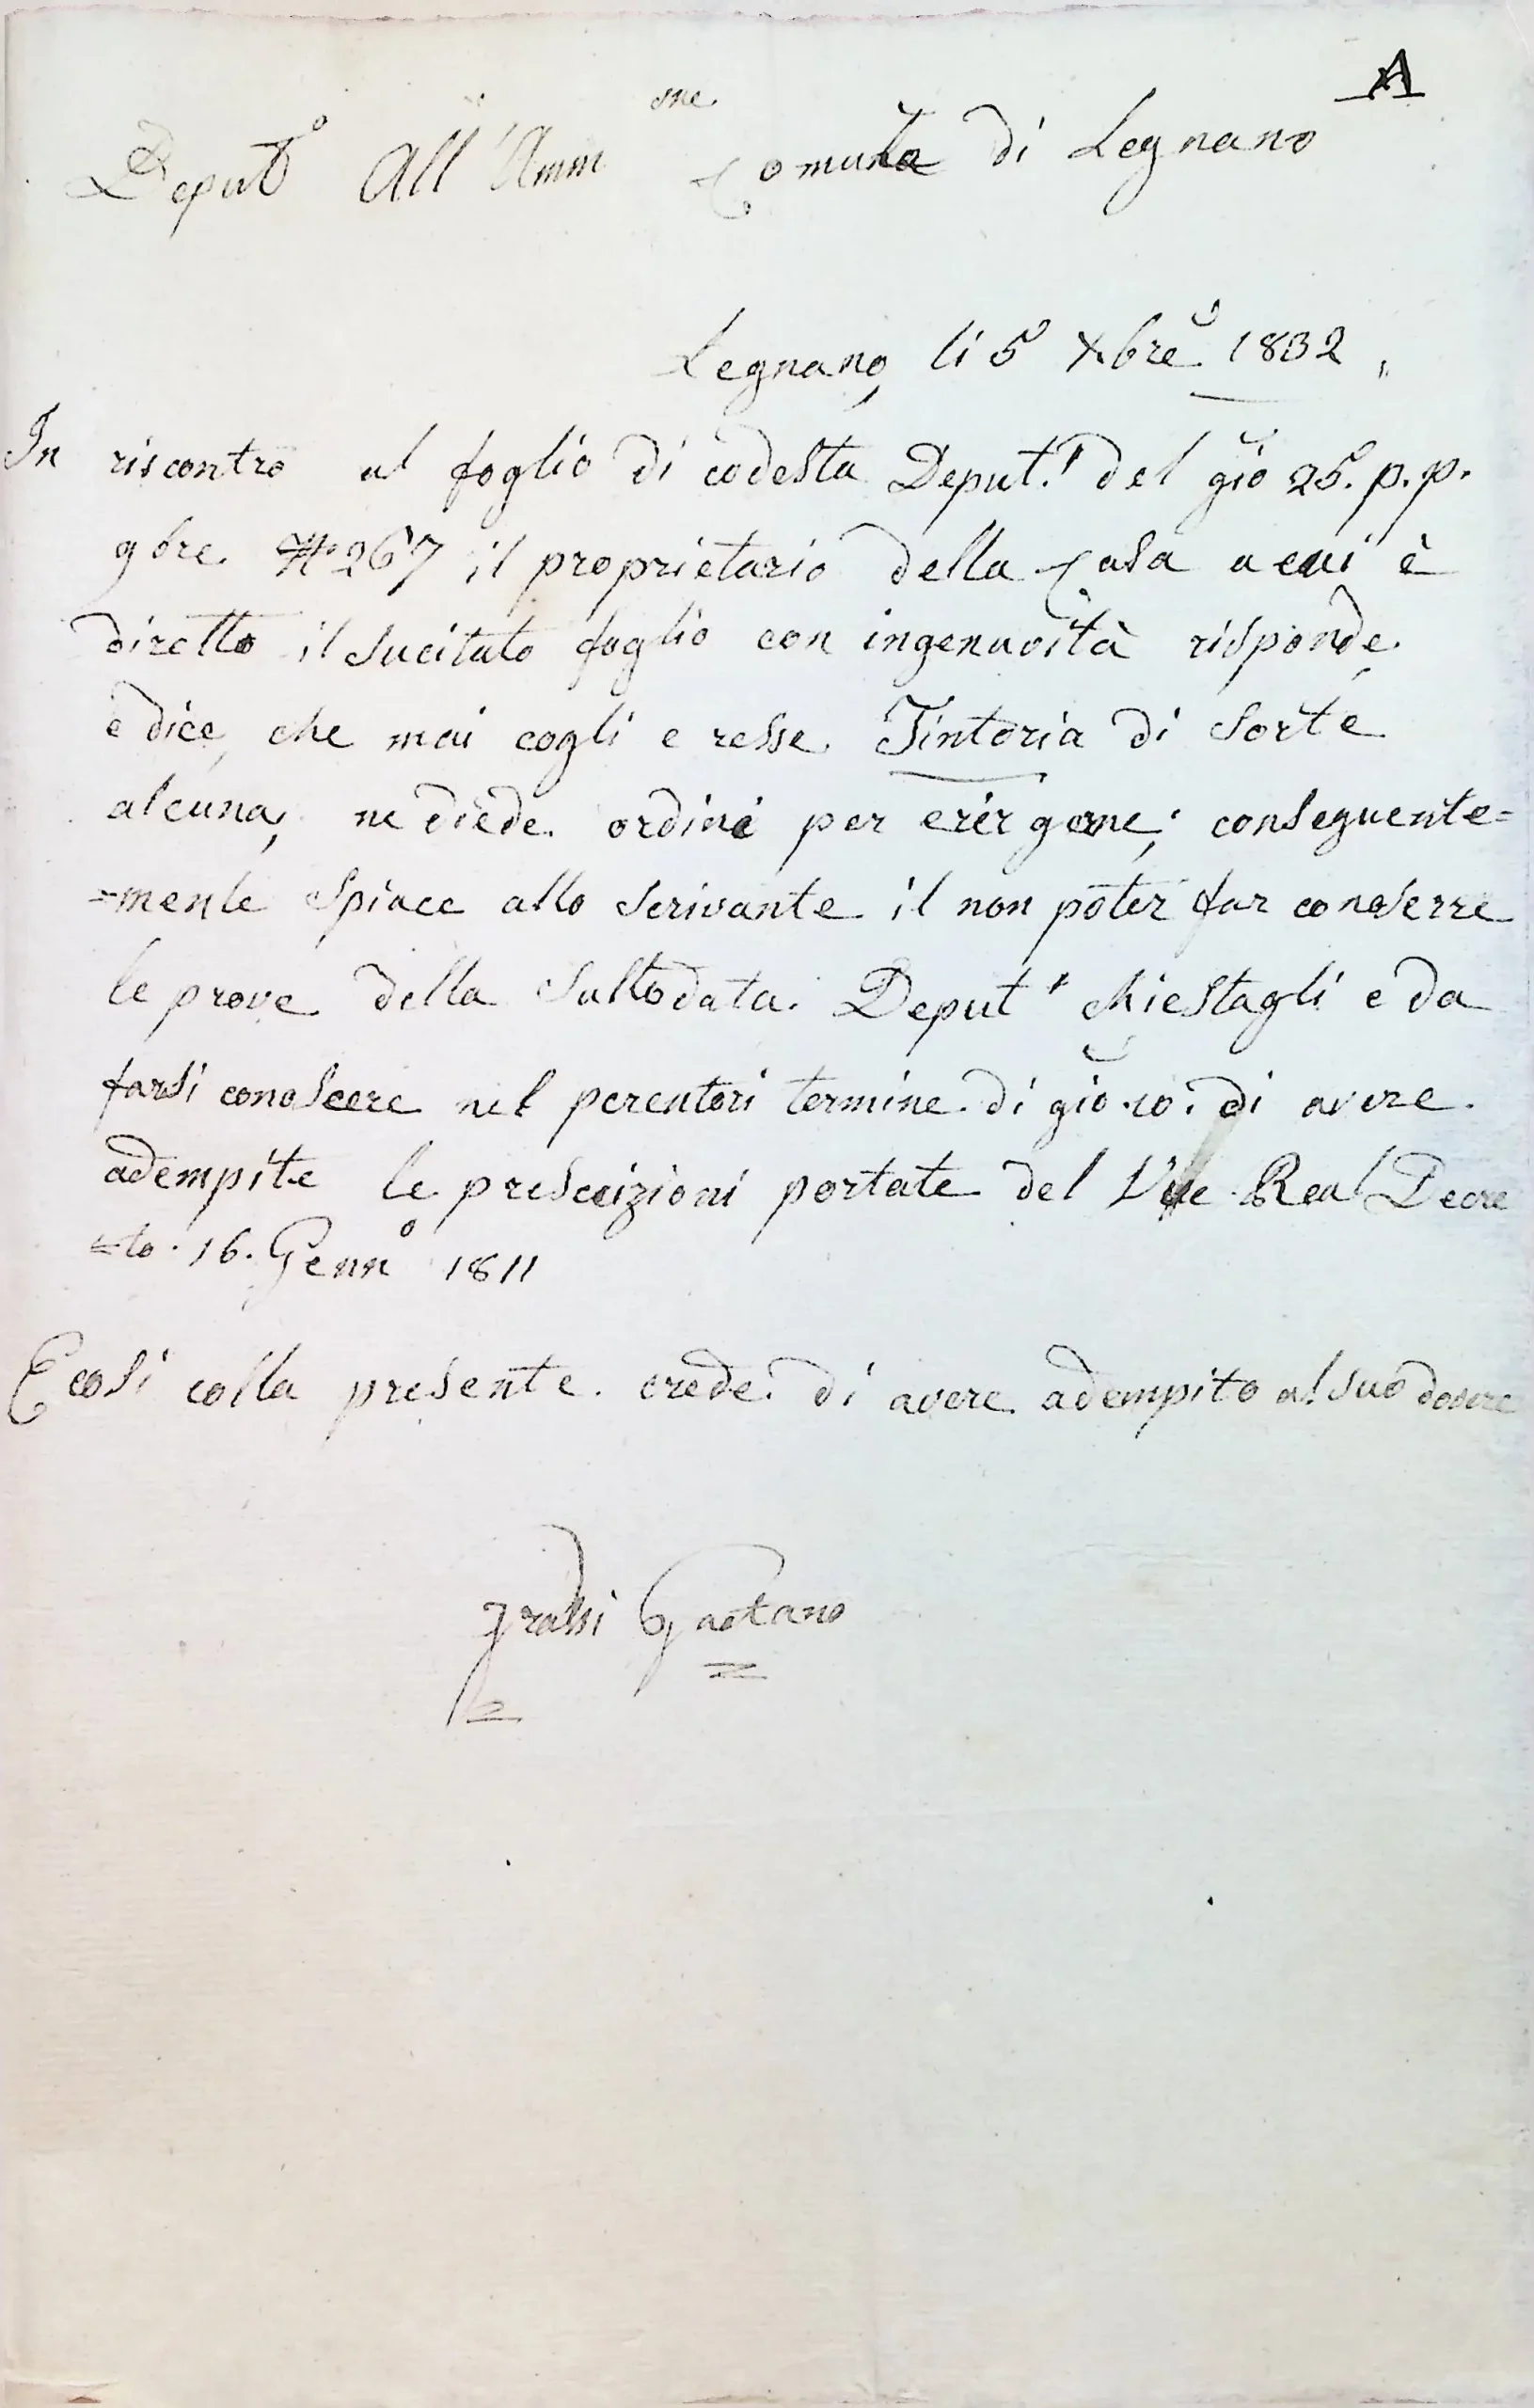 A
Deput.º All'Amm.ne Comunle di Legnano
Legnano, li 5 Xbre 1832
In riscontro al foglio di codesta Deput.e del gio 25. p. p.
9bre N° 267 il proprietario della Casa a cui è
diretto il sucitato foglio con ingenuoità risponde,
e dice, che mai cogli eresse Tintoria di sorte
alcuna, ne diede ordini per erirgerne; conseguente=
=mente spiace allo scrivante il non poter far conoserre
le prove della sullodata Deput.e chiestagli e da
farsi conoscere nel perentori termine di gio 10. di avere
adempite le prescrizioni portate del Vice Real Decre
=to. 16. Genn.º 1811
E cosi colla presente crede di avere adempito al suo dovere
Grassi Gaetano